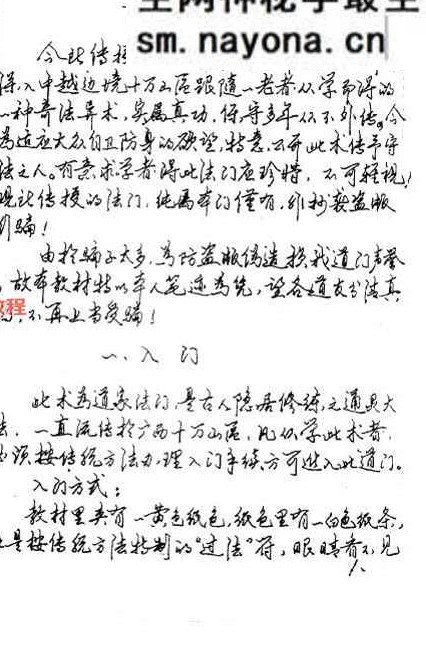 全网神秘学最全
sm.nayona.cn
今此传授
得，入中越边境十万山区跟随一老者从学而得的
一种奇法异术，实属真功，保守多年从不外传。今
为适应大众自卫防身的欲望，特意公开此术传予守
法之人。有意求学者得此法门应珍惜，不可轻视！
现让传授的法门，纯属本门仅有，非抄袭盗版
引骗！
由于骗子太多，为防盗版伪造损我道门声誉
，故本教材特以本人笔迹为凭，望各道友分清真
教程
，不再上当受骗！
一、入门
此术为道家法门，是古人隐居修练之通灵大
法，一直流传于广西十万山区，凡从学此术者，
必须按传统方法办理入门手续，方可进入此道门。
入门方式：
教材里夹有一黄色纸包，纸包里有一白色纸条，
是按传统方法特制的“过法”符，眼睛看不见